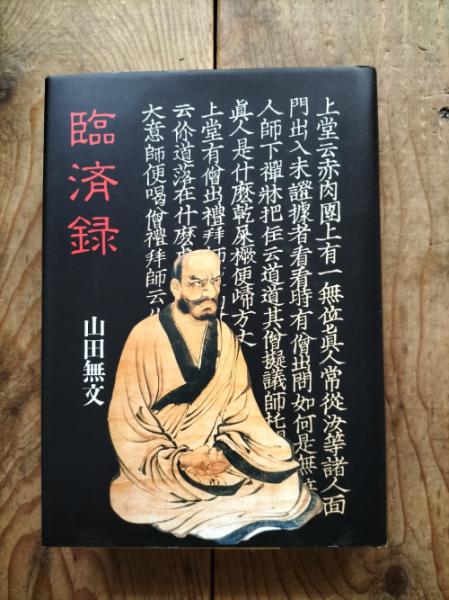 臨済録
山田無文
上堂云赤肉團上有一無位眞人常從汝等諸人面
門出入未證據者看看時有僧出問如何是無
人師下禪牀把住云道道其僧擬議師托
眞人是什麼乾屎橛便歸方丈
上堂有僧出禮拜師
云你道落在什麼
大意師便喝僧禮拜師云